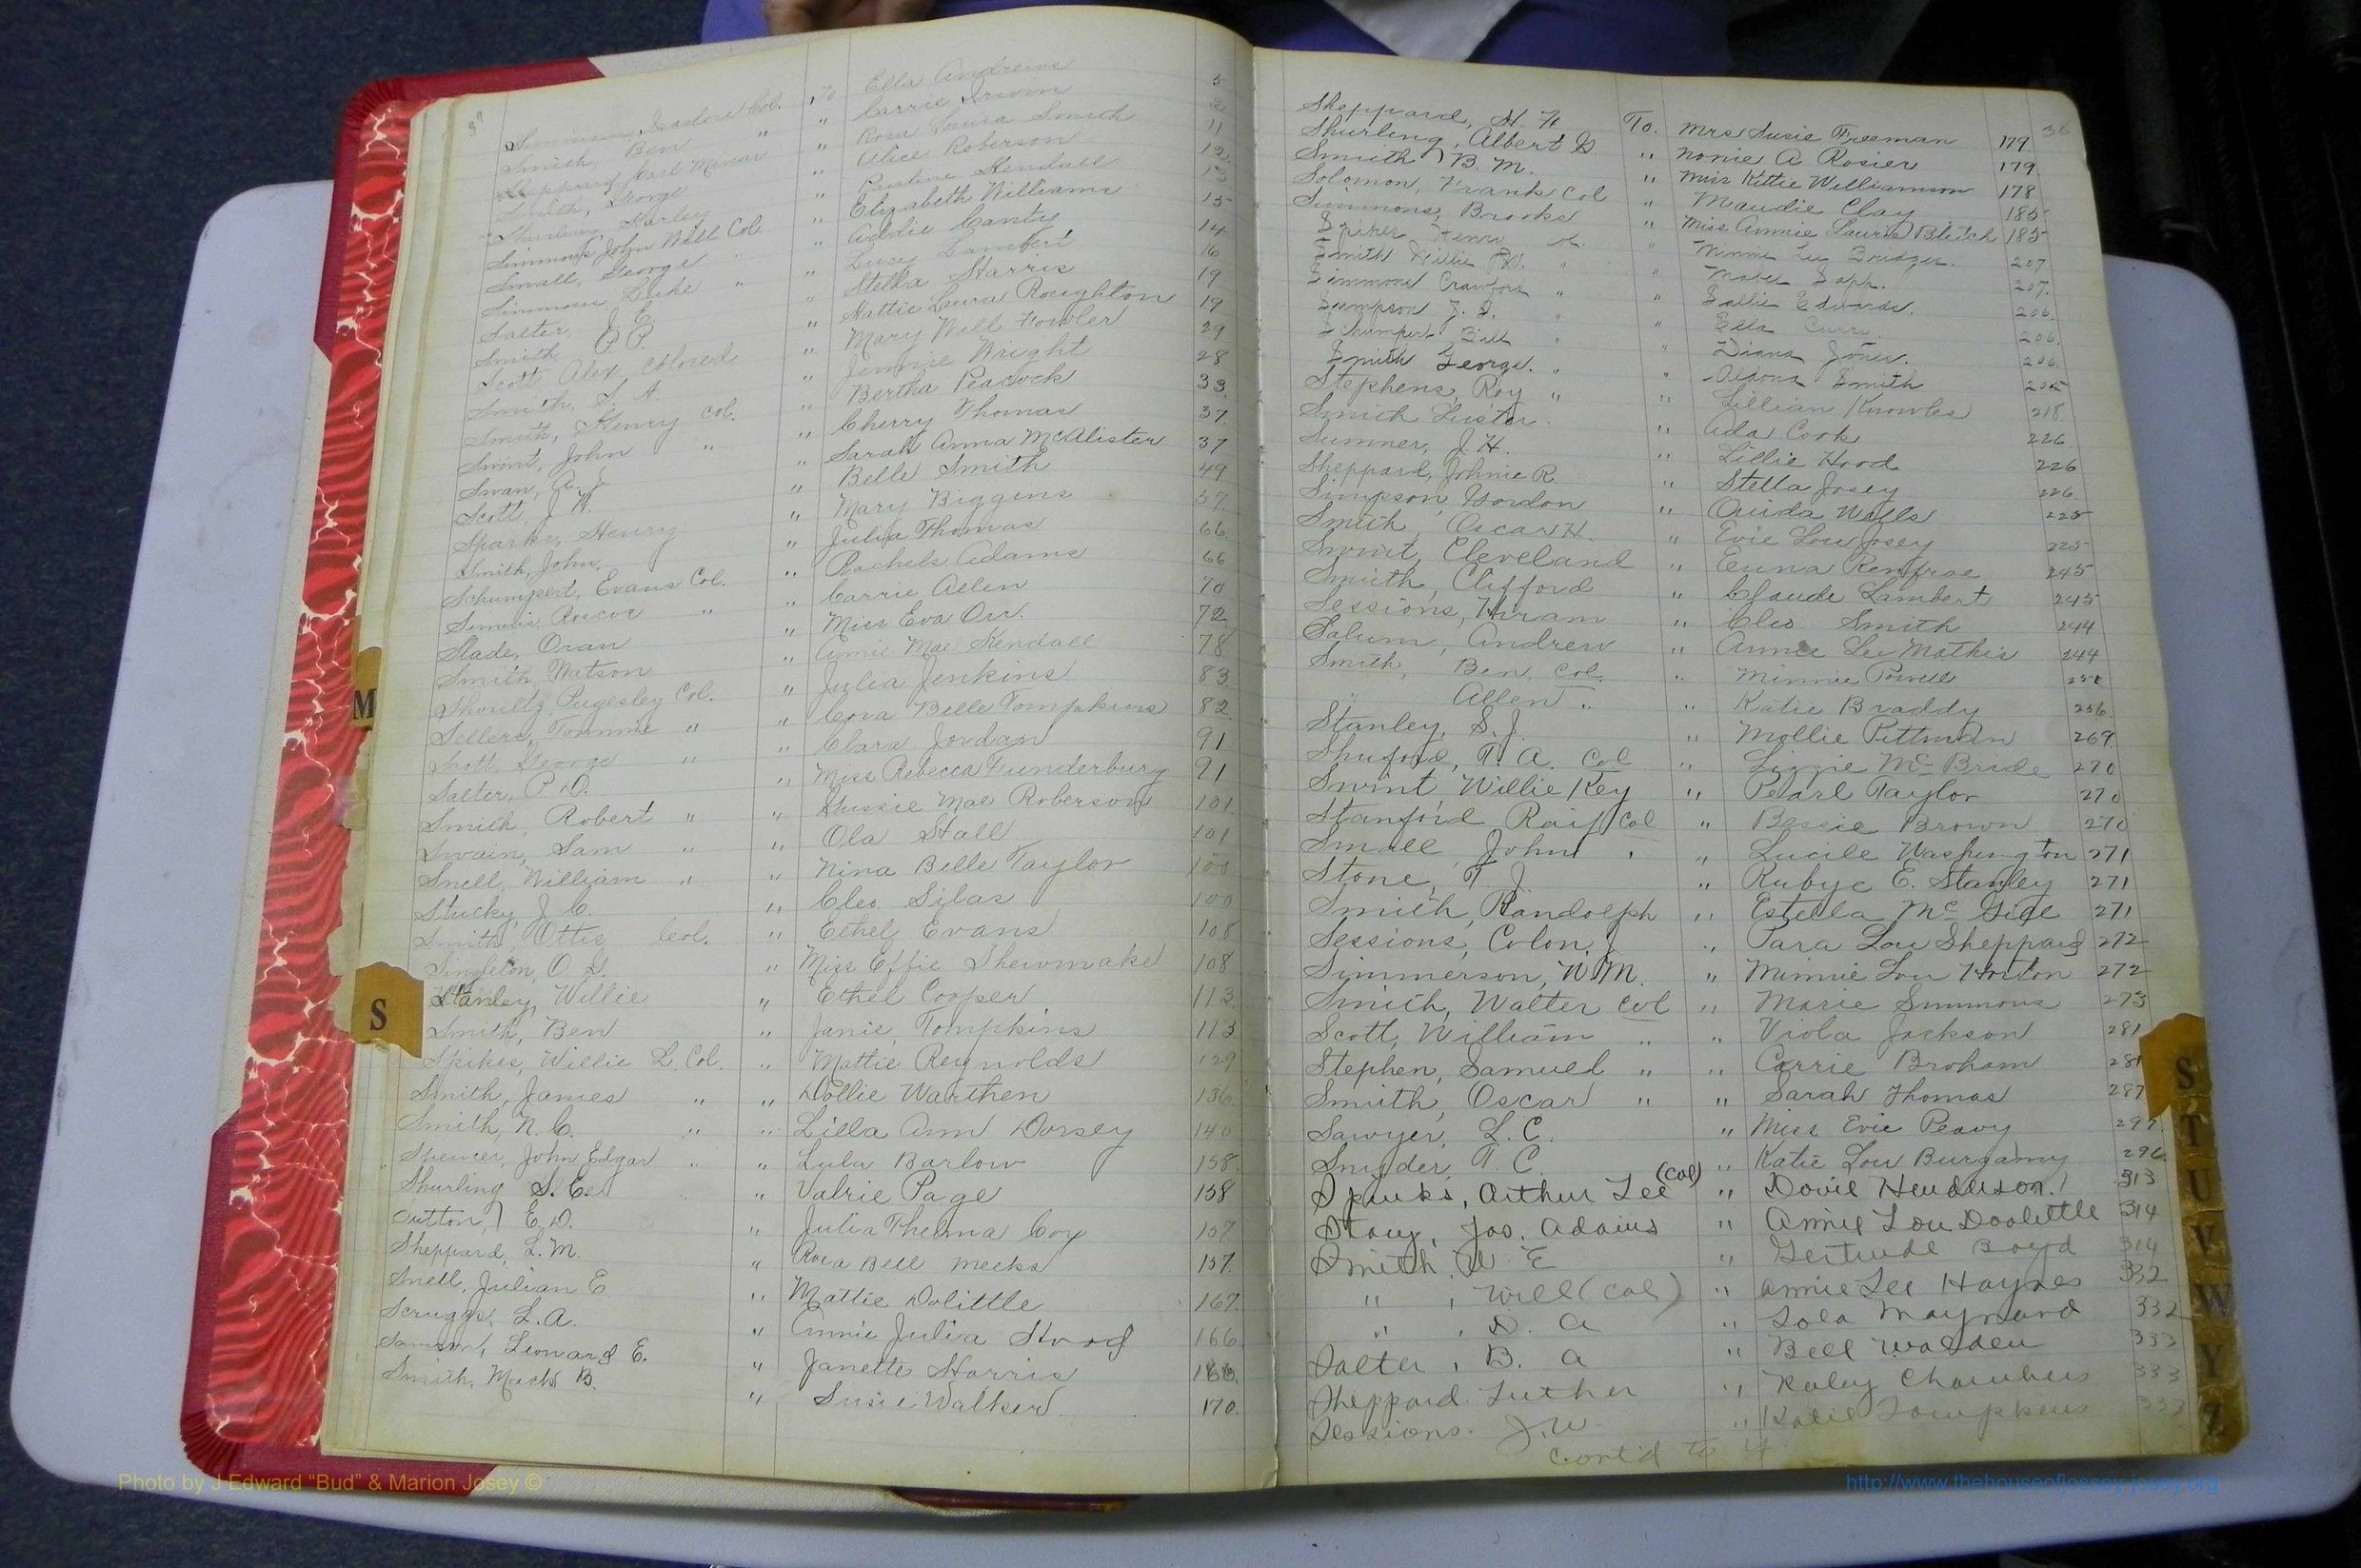 37
Simmons, Isadore Col. To Ella Andrews 5
Smith, Ben " " Carrie Irwin 2
Sheppard, Carl Minor " Rosa Louisa Smith 11
Smith, George " Alice Roberson 12
Shurling, Harley " Pauline Kendall 13
Simmons, John Will Col. " Elizabeth Williams 15
Small, George " " Addie Canty 14
Simmons, Luke " " Lucy Lambert 16
Salter, J. E. " Stella Harris 19
Smith, P. P. " Hattie Laura Roughton 19
Scott, Alex, Colored " Mary Will Fowler 29
Smith, S. A. " Jennie Wright 28
Smith, Henry Col. " Bertha Peacock 33
Swint, John " " Cherry Thomas 37
Swan, A. J. " Sarah Anna McAlister 37
Scott, J. W. " Belle Smith 49
Sparks, Henry " Mary Biggins 57
Smith, John, " Julia Thomas 66
Schumpert, Evans Col. " Rachels Adams 66
Simmis, Roscoe " " Carrie Allen 70
Slade, Oran " Miss Eva Orr. 72
Smith, Watson " Annie Mae Kendall 78
Pugesley Col. " Julia Jenkins 83
Sellers, Tommie " " Cora Belle Tompkins 82
Scott, George " " Clara Jordan 91
Salter, P. D. " Miss Rebecca Funderburg 91
Smith, Robert " " Gussie Mae Roberson 101
Swain, Sam " " Ola Hall 101
Snell, William " " Nina Belle Taylor 100
Stucky, J. C. " Cleo Silas 100
Smith, Ottis Col. " Ethel Evans 108
Singleton, O. G. " Miss Effie Shewmake 108
Stanley, Willie " Ethel Cooper 113
Smith, Ben " Janie Tompkins 113
Spikes, Willie L. Col. " Mattie Reynolds 129
Smith, James " " Dollie Warthen 136
Smith, N. C. " " Lilla Ann Dorsey 140
Spencer, John Edgar " " Lula Barlow 158
Shurling S. E. " Valrie Page 158
Sutton, E. D. " Julia Thelma Coy 157
Sheppard, L. M. " Rosa Bell Meeks 157
Snell, Julian E " Mattie Dolittle 167
Scruggs, L. A. " Annie Julia Hood 166
Leonard E. " Janette Harris 166
Smith, Mack B. " Susie Walker 170
36
Sheppard, H. H To. Mrs Susie Freeman 179
Shurling, Albert D. " Nonie A Rosier 179
Smith, B. M. " Miss Kittie Williamson 178
Solomon, Frank Col " Maudie Clay 185
Simmons, Brooks " Miss Annie Laurie Blitch 185
Spikes Henri " Minnie Lee Bridges. 207
Smith Willie " " Mabel Sapp. 207.
Simmons Crawford " " Sallie Edwards. 206
Simpson J. D. " " Ella Curry. 206.
Schumpert Bill " " Diana Jones. 206
Smith George. " " Smith 205
Stephens, Roy " " Lillian Knowles 218
Smith Luster. " Ada Cook 226
Sumner, J. H. " Lillie Hood 226
Sheppard, Johnie R. " Stella Josey 226.
Simpson, Gordon " Ouida Wells 225
Smith, Oscar H. " Evie Lou Josey 225
Swint, Cleveland " Euna Renfroe 245
Smith, Clifford " Claude Lambert 245
Sessions, Hiram " Cleo Smith 244
Salum, Andrew " Annie Lee Mathis 244
Smith, Ben Col. " Minnie Powell
" Allen " " Katie Braddy 256
Stanley, S. J. " Mollie Pittman 269
Shuford, T. A. Col " Lizzie Mc Bride 270
Swint, Willie Key " Pearl Taylor 270
Stanford Raif Col " Bessie Brown 270
Small, John " " Lucile Washington 271
Stone, T J " Rubye E. Stanley 271
Smith, Randolph " Estella Mc Gill 271
Sessions, Colon J " Para Lou Sheppard 272
Simmerson, W M. " Minnie Lou Horton 272
Smith, Walter Col " Marie Simmons 273
Scott, William " " Viola Jackson 281
Stephen, Samuel " " Carrie Broham 281
Smith, Oscar " " Sarah Thomas 287
Sawyer, L. C. " Miss Evie Peavy 297
Snyder, T. C. " Katie Lou Burgamy 296.
Spinks, Arthur Lee (Col) " Dovie Henderson. 313
Stacy, Jos. Adams " Annie Lou Doolittle 314
Smith, W E " Gertrude Boyd 314
" , Will (Col) " Annie Lee Haynes 332
" , D. A " Lola Maynard 332
Salter, B. A " Bell Walden 333
Sheppard Luther " Chambers 333
Sessions. J. W " Katie Tompkins 333
Cont'd to Y
M
S
S
T
U
V
W
Y
Z
Photo by J Edward "Bud" & Marion Josey ©
http://www.thehouseofjossey-josey.org